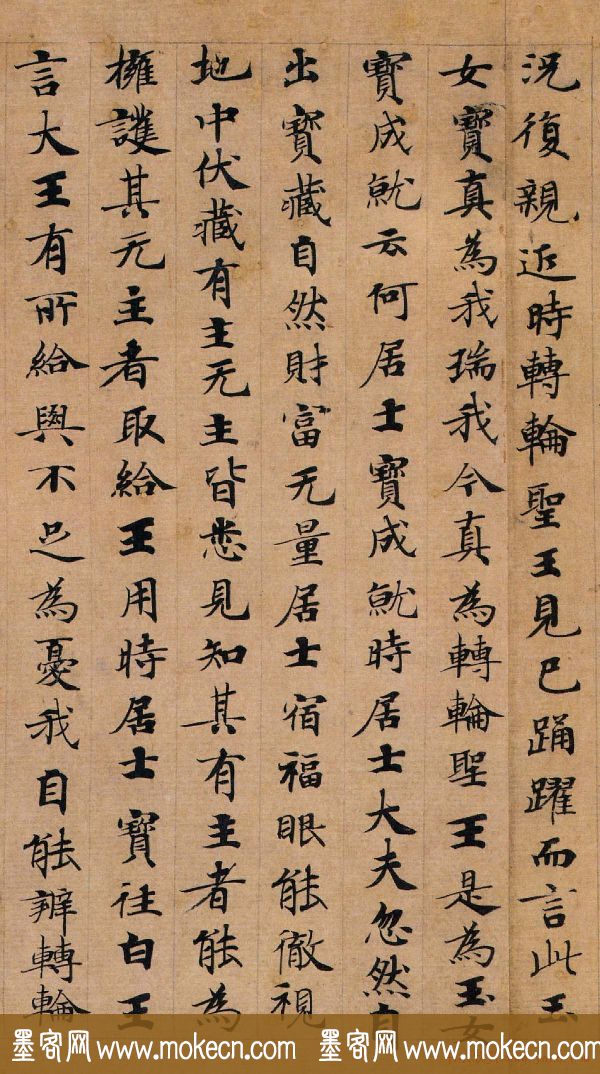 況復親近時轉輪聖王見已踊躍而言此玉
女寶真為我瑞我今真為轉輪聖王是為玉女
寶成就云何居士寶成就時居士大夫忽然自
出寶藏自然財富无量居士宿福眼能徹視
地中伏藏有主无主皆悉見知其有主者能為
擁護其无主者取給王用時居士寶往白王
言大王有所給與不足為憂我自能辦轉輪
墨客网 www.mokecn.com 墨客网 www.mokecn.com